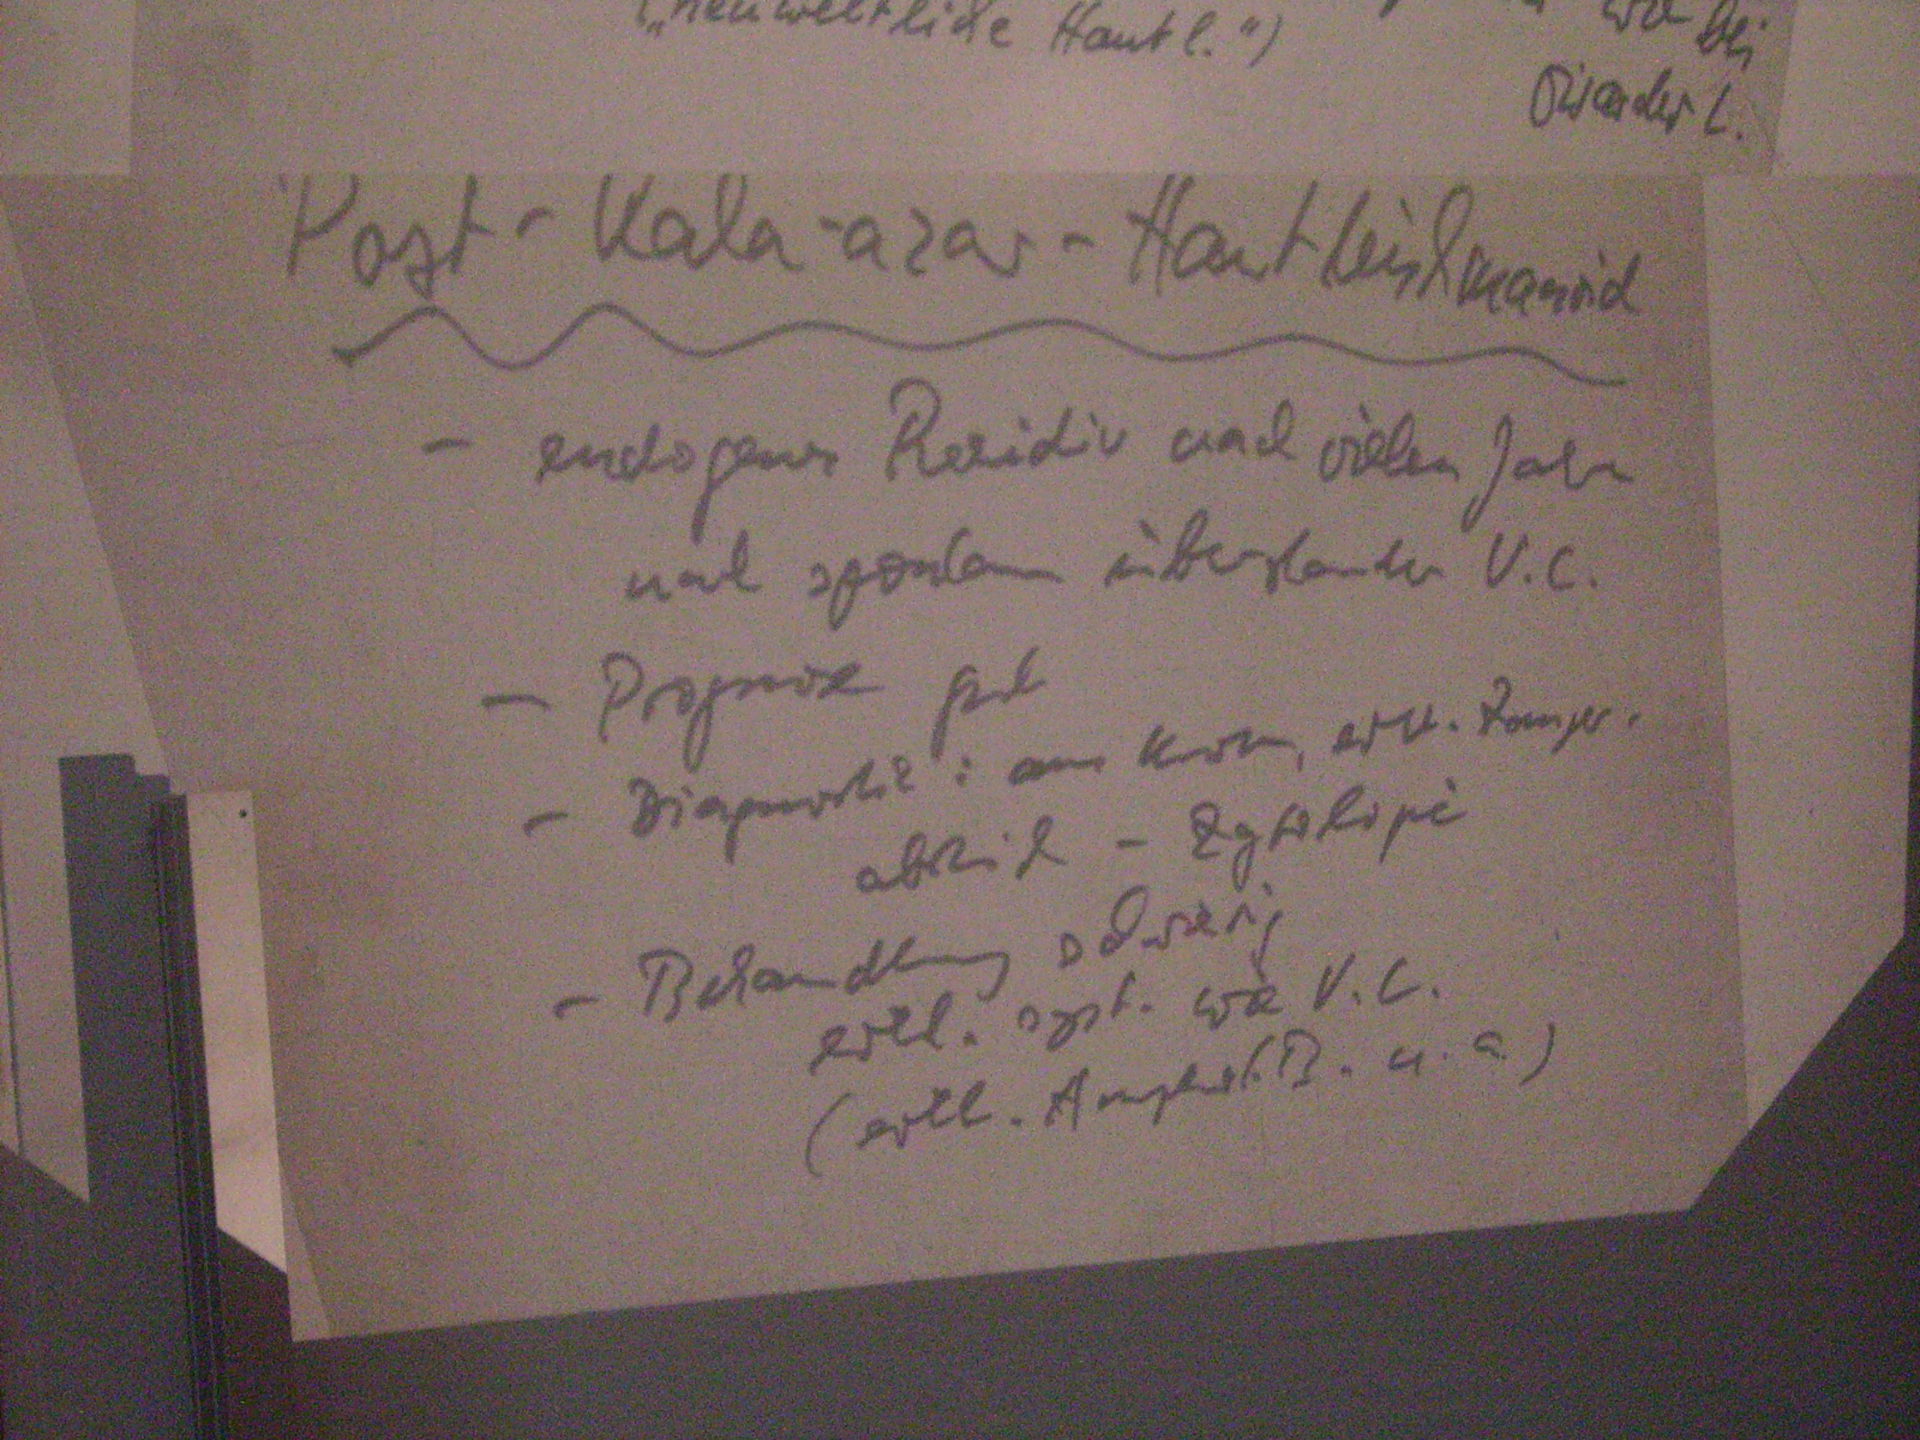 ("neuweltliche Hautl.") wie bei
Viszeraler L.
Post-Kala-azar-Hautleishmanoid
- endogenes Rezidiv nach vielen Jahren
nach spontan überstandener V.L.
- Prognose gut
- Diagnostik: aus Knoten, evtl.
abstrich - Zytologie
- Behandlung schwierig
evtl. syst. wie V.L.
(evtl. Amphot. B. u. a.)